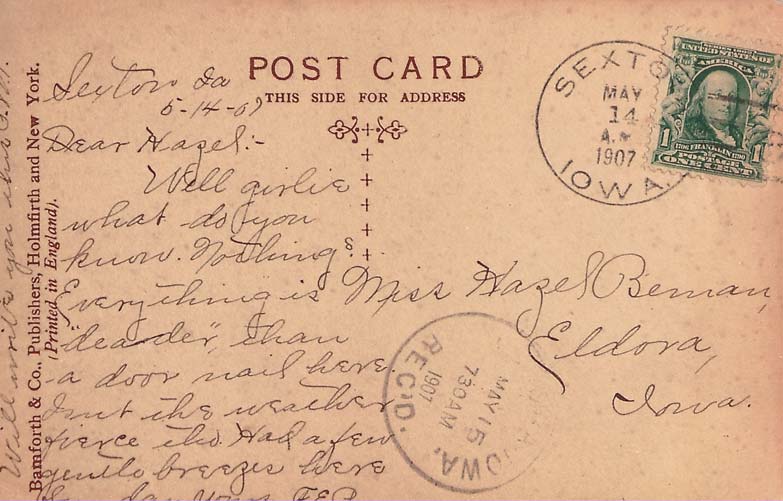 POST CARD
THIS SIDE FOR ADDRESS
Bamforth & Co., Publishers, Holmfirth and New York.
(Printed in England).
Sexton Ia
5-14-07
Dear Hazel:-
Well girlie
what do you
know. Nothing?
Everything is
"dead-er", than
a door nail here.
Isnt the weather
fierce tho. Had a few
gentle breezes here
Will write you this P.M.
SEXTO
MAY
14
A.M
1907
IOWA.
UNITED STATES OF
AMERICA
1 1
1706 FRANKLIN 1790
POSTAGE
ONE CENT
Miss Hazel Beman,
Eldora,
Iowa.
MAY 15
730AM
1907
IOWA.
REC'D.